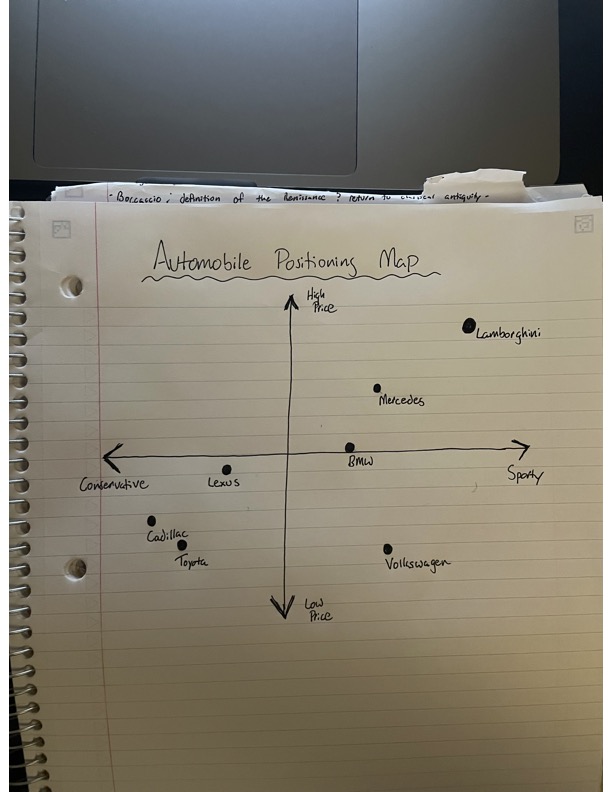 - Boccaccio ; definition of the Renissance ? return to classical antiquity -
Automobile Positioning Map
High
Price
Lamborghini
Mercedes
BMW
Conservative
Lexus
Sporty
Cadillac
Toyota
Volkswagen
Low
Price